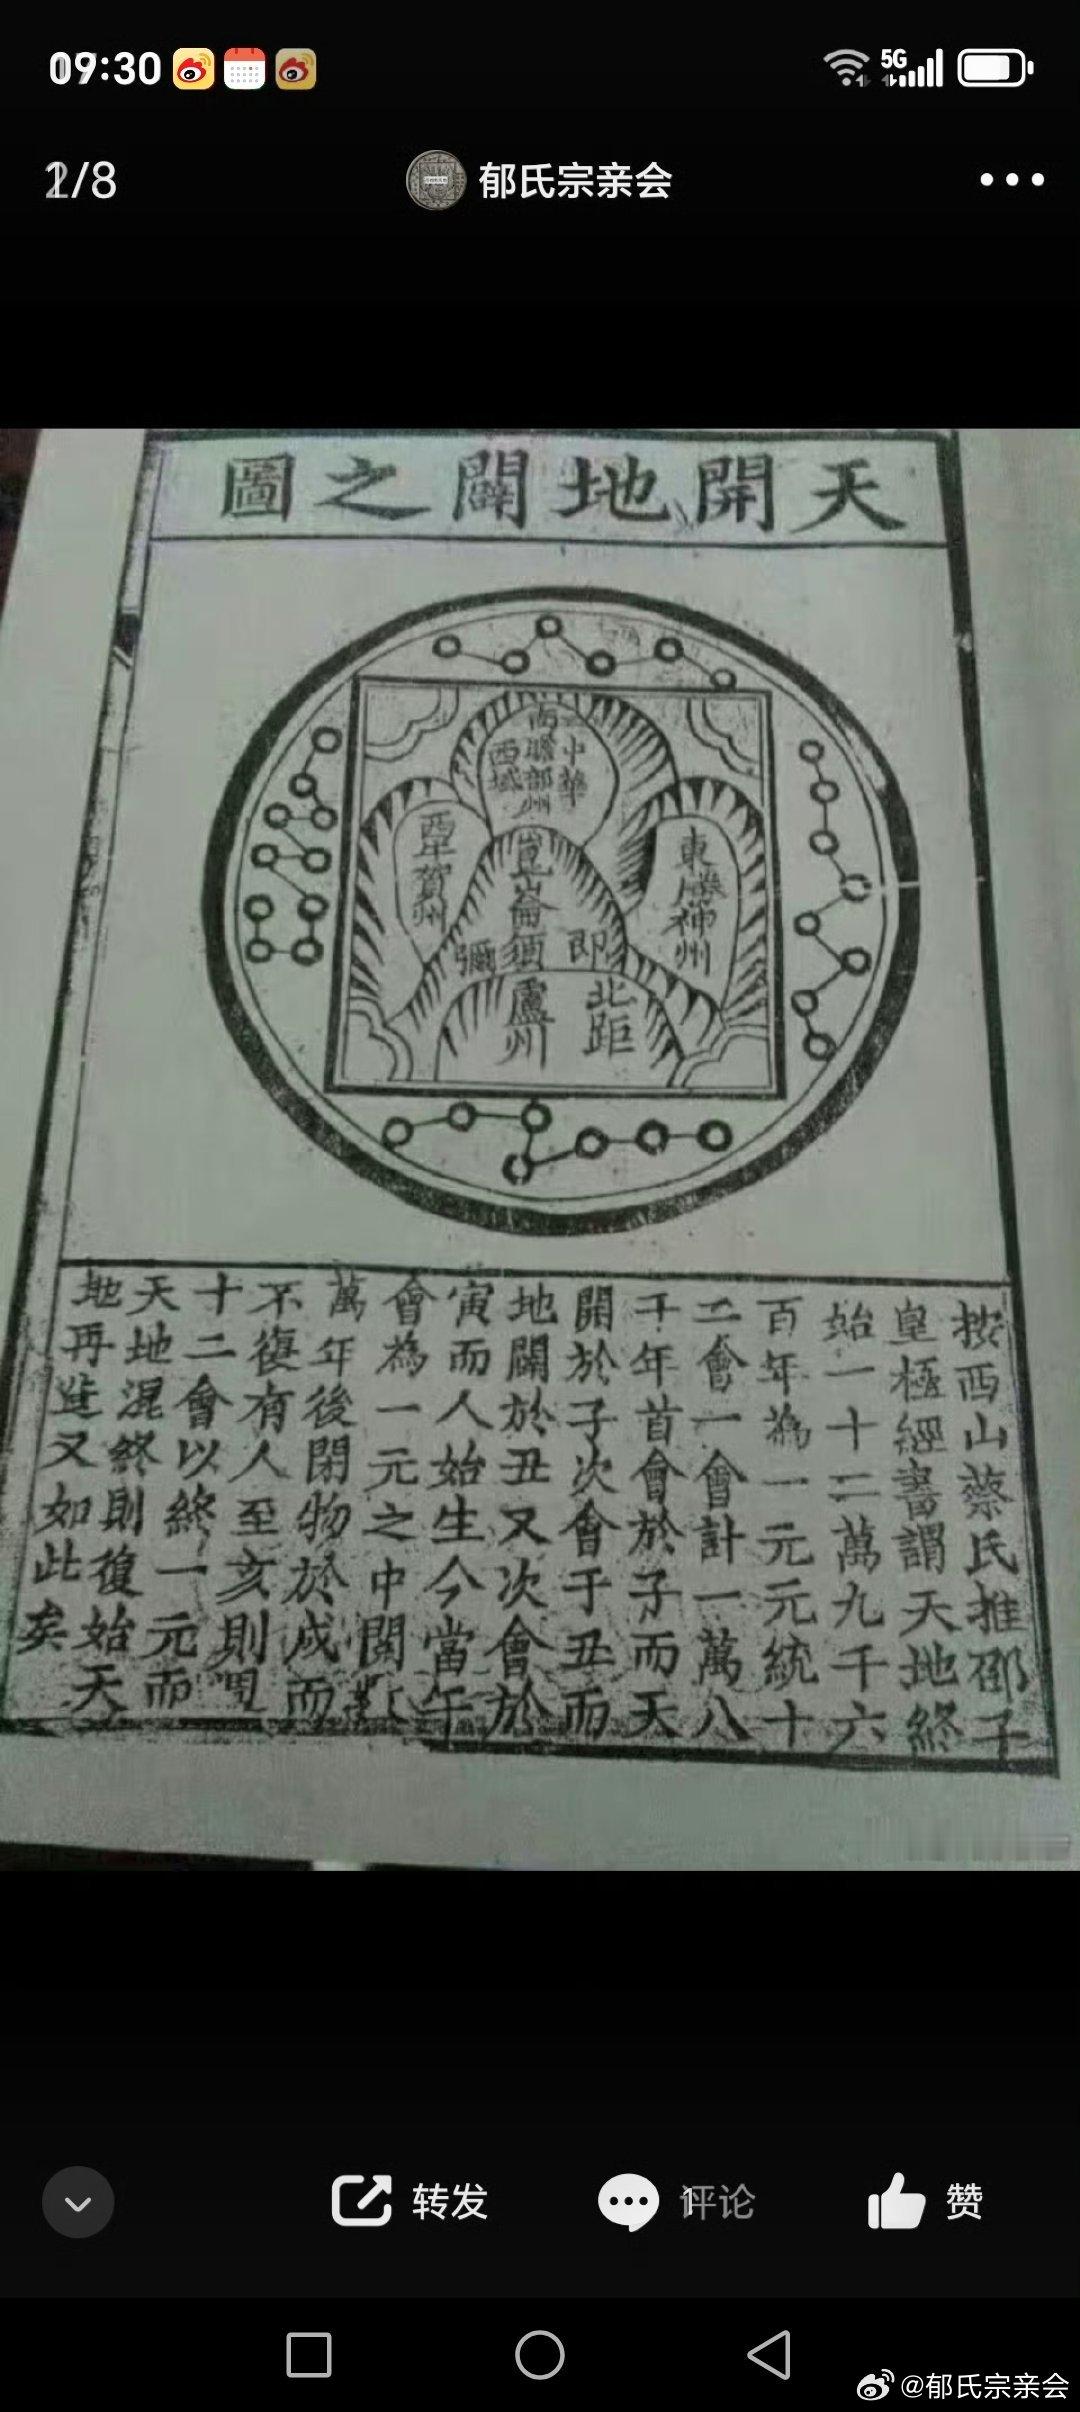 09:30
5G
/8
郁氏宗亲会
天開地闢之圖
中華
南瞻部州
西域
東勝神州
崑崙
即須彌
西牛賀州
北距
盧州
按西山蔡氏推邵子
皇極經書謂天地終
始一十二萬九千六
百年為一元元統十
二會一會計一萬八
千年首會於子而天
開於子次會于丑而
地闢於丑又次會於
寅而人始生今當午
會為一元之中閱
萬年後閉物於戌而
不復有人至亥則
十二會以終一元而
天地混終則復始天
地再造又如此矣
转发
评论
赞
@郁氏宗亲会